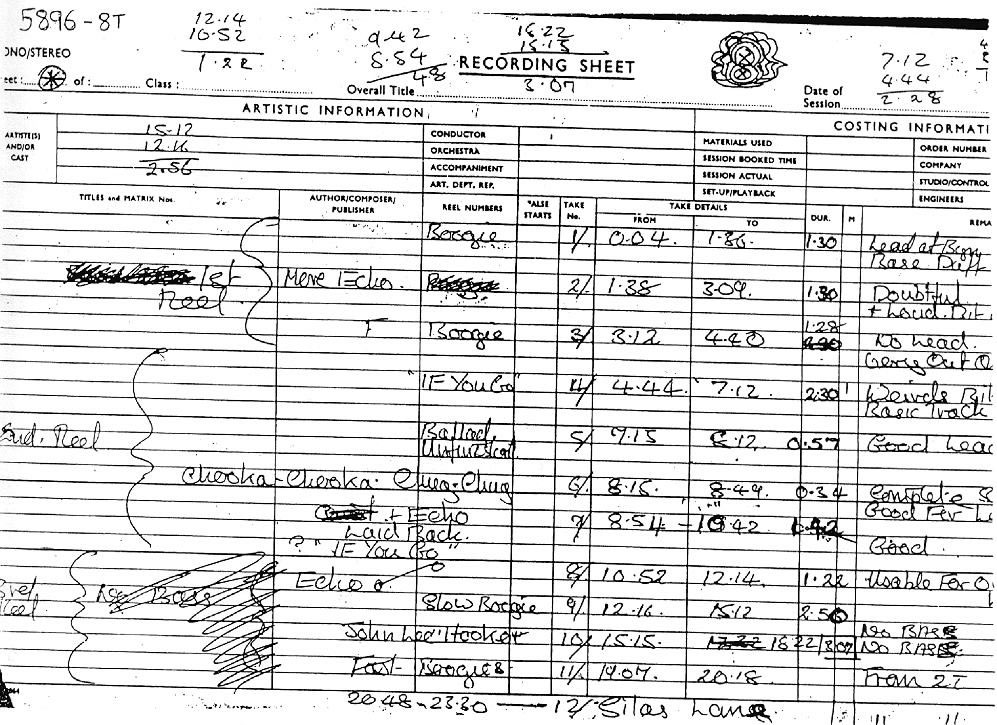 5896-8T
12.14
10.52
1.22
9.42
8.54
48
18.22
15.15
3.07
7.12
4.44
2.28
ONO/STEREO
RECORDING SHEET
eet: of: Class:
Overall Title
Date of Session
ARTISTIC INFORMATION
COSTING INFORMATI
ARTISTE(S) AND/OR CAST
15-12
12.16
2.56
CONDUCTOR
ORCHESTRA
ACCOMPANIMENT
ART. DEPT. REP.
MATERIALS USED
SESSION BOOKED TIME
SESSION ACTUAL
SET-UP/PLAYBACK
ORDER NUMBER
COMPANY
STUDIO/CONTROL
ENGINEERS
TITLES and MATRIX Nos.
AUTHOR/COMPOSER/ PUBLISHER
REEL NUMBERS
FALSE STARTS
TAKE No.
TAKE DETAILS
FROM
TO
DUR.
M
REMA
Boogie 1/ 0.04. 1.36. 1.30 Lead at
Base
1st Reel
More Echo. 2/ 1.38 3.09. 1.30 Doubtful
+ Loud.
Boogie 3/ 3.12 4.40 1.28 No Lead.
Carry Out
"IF You Go" 4/ 4.44. 7.12. 2.30
Basic Track
2nd. Reel
Ballad Unfinished 5/ 7.15 8.12. 0.57 Good Lead
Chooka-Chooka. Chug-Chug 6/ 8.15. 8.49. 0.34 Complete
Good For
+ Echo 7/ 8.54 - 10.42 1.42
Laid Back.
? "IF You Go"
Good
3rd Reel
No Bass
Echo 8/ 10.52 12.14. 1.22 Usable For
Slow Boogie 9/ 12.16. 15.12 2.56
John Lee Hooker 10/ 15.15. 18.22/3.07 No BASE
No BASE
Fast Boogies 11/ 19.07. 20.18. From 2T
20.48-23.30 — 12/ Silas Lane